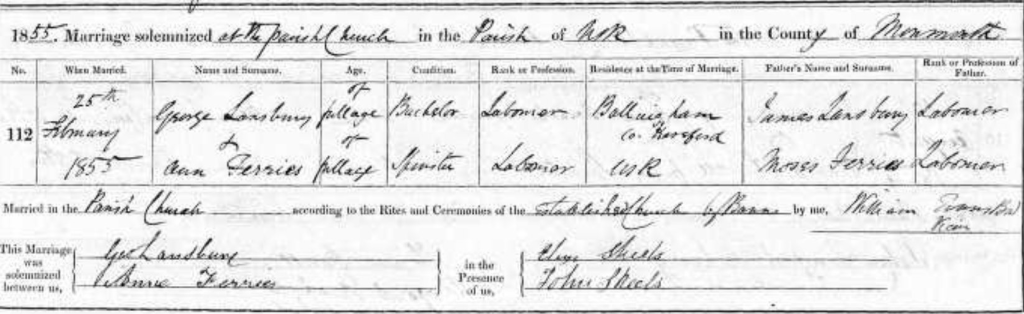 1855. Marriage solemnized at the parish Church in the Parish of Usk in the County of Monmouth
No. When Married. Name and Surname. Age. Condition. Rank or Profession. Residence at the Time of Marriage. Father's Name and Surname. Rank or Profession of Father.
112 25th February 1855 George Lansbury of full age Bachelor Labourer Ballingham Co. Hereford James Lansbury Labourer
& Ann Ferries of full age Spinster Labourer Usk Moses Ferries Labourer
Married in the Parish Church according to the Rites and Ceremonies of the Established Church by Banns by me, William Evans
Vicar
This Marriage was solemnized between us, Geo Lansbury in the Presence of us, Skeels
Ferries John Skeels